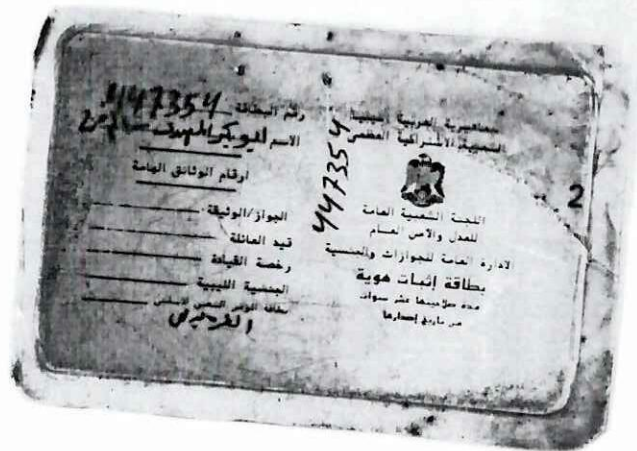 الجماهيرية العربية الليبية
الشعبية الاشتراكية العظمى
اللجنة الشعبية العامة
للعدل والأمن العام
الادارة العامة للجوازات والجنسية
بطاقة إثبات هوية
مدة صلاحيتها عشر سنوات
من تاريخ إصدارها
447354
2
رقم البطاقة 447354
الاسم
أرقام الوثائق الهامة
الجواز/الوثيقة
قيد العائلة
رخصة القيادة
الجنسية الليبية